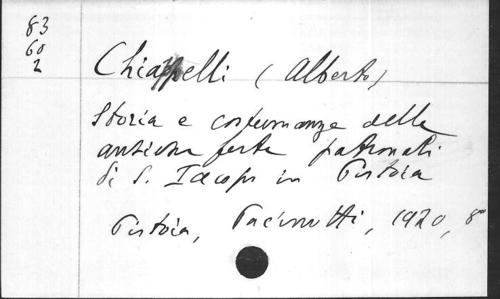 83
60
2
Chiappelli (Alberto)
Storia e costumanze delle
antiche feste patronali
di S. Iacopo in Pistoia
Pistoia, Pacinotti, 1920, 8°